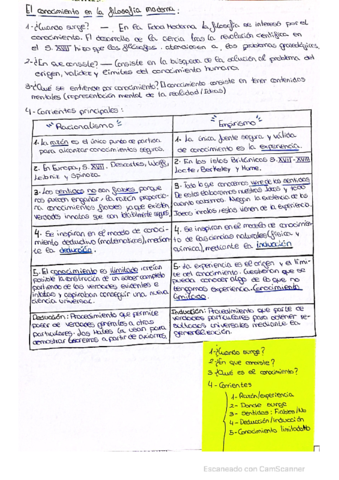 El conocimiento en la filosofía moderna:
1-¿Cuándo surge? — En la Época Moderna la filosofía se interesó por el
conocimiento. El desarrollo de la ciencia tras la revolución científica en
el S. XVII hizo que los filósofos atendiesen a los problemas gnoseológicos.
2-¿En que consiste? — Consiste en la búsqueda de la solución al problema del
origen, validez y límites del conocimiento humano.
3-¿Qué se entiende por conocimiento? El conocimiento consiste en tener contenidos
mentales (representación mental de la realidad/Ideas)
4-Corrientes principales:
"Racionalismo"
1. La razón es el único punto de partida
para alcanzar conocimientos seguros.
2. En Europa, S. XVII. Descartes, Wolff,
Leibniz y Spinoza.
3. Los sentidos no son fiables, porque
nos pueden engañar. La razón proporcio-
na conocimientos fiables ya que existen
verdades innatas que son totalmente
4. Se inspiran en el modelo de conoci-
miento deductivo (matemáticas), median-
te la deducción.
5. El conocimiento es ilimitado
posible la construcción de un saber completo
partiendo de las verdades evidentes e
innatas y aspiraban conseguir una nueva
ciencia universal.
Deducción: Procedimiento que permite
pasar de verdades generales a otras
particulares. Los mates la usan para
demostrar teoremas a partir de axiomas.
"Empirismo"
1. La única fuente segura y válida
de conocimiento es la experiencia.
2. En las Islas Británicas S. XVII-XVIII
Locke, Berkeley y Hume.
3. Todo lo que conocemos viene de los sentidos
De estos elaboramos nuestras ideas y todo
conocimiento. Niegan la existencia de
ideas innatas, estas vienen de la experiencia.
4. Se inspiran en el modelo de conocim-
iento de las ciencias naturales (física y
química), mediante la inducción
5. La experiencia es el origen y el lími-
te del conocimiento. Cuestionan que se
pueda conocer algo de lo que no
tengamos experiencia. Conocimiento
limitado.
Inducción: Procedimiento que parte de
verdades particulares para obtener re-
sultados universales mediante la
generalización.
1-¿Cuándo surge?
2-¿En que consiste?
3-¿Qué es el conocimiento?
4-Corrientes
1-Razón/experiencia
2-Donde surge
3-Sentidos: Fiables/No
4-Deducción/inducción
5-Conocimiento limitado/No
Escaneado con CamScanner